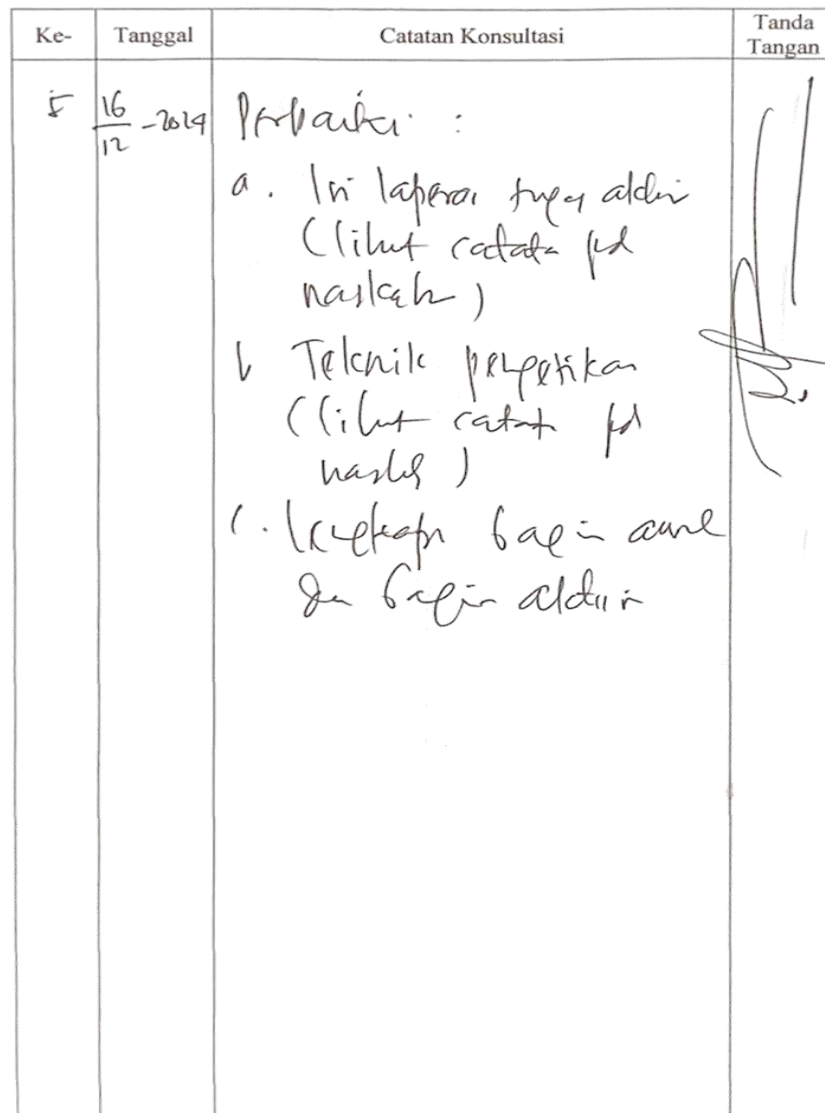 Ke- Tanggal Catatan Konsultasi Tanda Tangan
5 16/12 -2024 Perbaiki :
a. Isi laporan tugas akhir
(lihat catatan pd
naskah)
b Teknik pengetikan
(lihat catatan pd
naskah)
c. Lengkapi bagian awal
dan bagian akhir